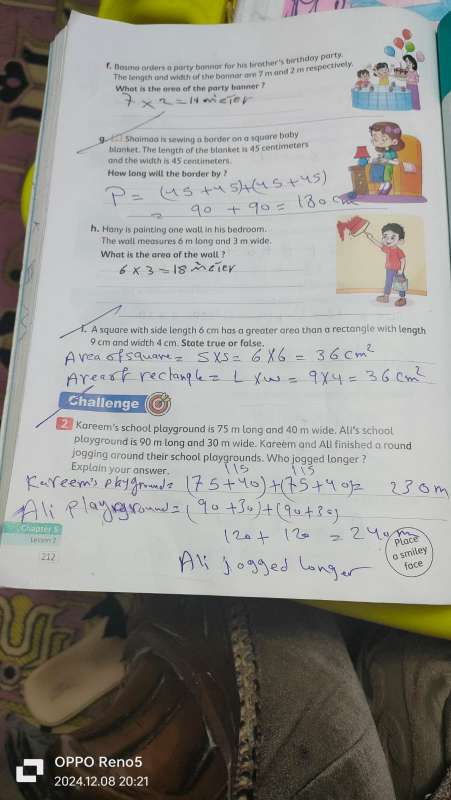 f. Basma orders a party banner for his brother's birthday party.
The length and width of the banner are 7 m and 2 m respectively.
What is the area of the party banner ?
7 x 2 = 14 meter
g. Shaimaa is sewing a border on a square baby
blanket. The length of the blanket is 45 centimeters
and the width is 45 centimeters.
How long will the border by ?
P = (45 + 45) + (45 + 45)
= 90 + 90 = 180 cm
h. Hany is painting one wall in his bedroom.
The wall measures 6 m long and 3 m wide.
What is the area of the wall ?
6 x 3 = 18 meter
i. A square with side length 6 cm has a greater area than a rectangle with length
9 cm and width 4 cm. State true or false.
Area of square = S x S = 6 x 6 = 36 cm²
Area of rectangle = L x w = 9 x 4 = 36 cm²
Challenge
2 Kareem's school playground is 75 m long and 40 m wide. Ali's school
playground is 90 m long and 30 m wide. Kareem and Ali finished a round
jogging around their school playgrounds. Who jogged longer ?
Explain your answer.
115 115
Kareem's playground = (75 + 40) + (75 + 40) = 230 m
Ali playground = (90 + 30) + (90 + 30)
120 + 120 = 240 m
Ali jogged longer
Place
a smiley
face
Chapter 5
Lesson 2
212
OPPO Reno5
2024.12.08 20:21